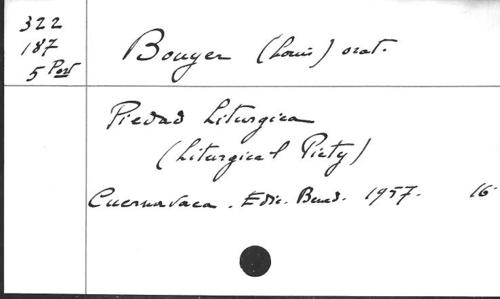 322
187
5 Port
Bouyer (Louis) orat.
Piedad Liturgica
(Liturgical Piety)
Cuernavaca. Edic. Bened. 1957. 16